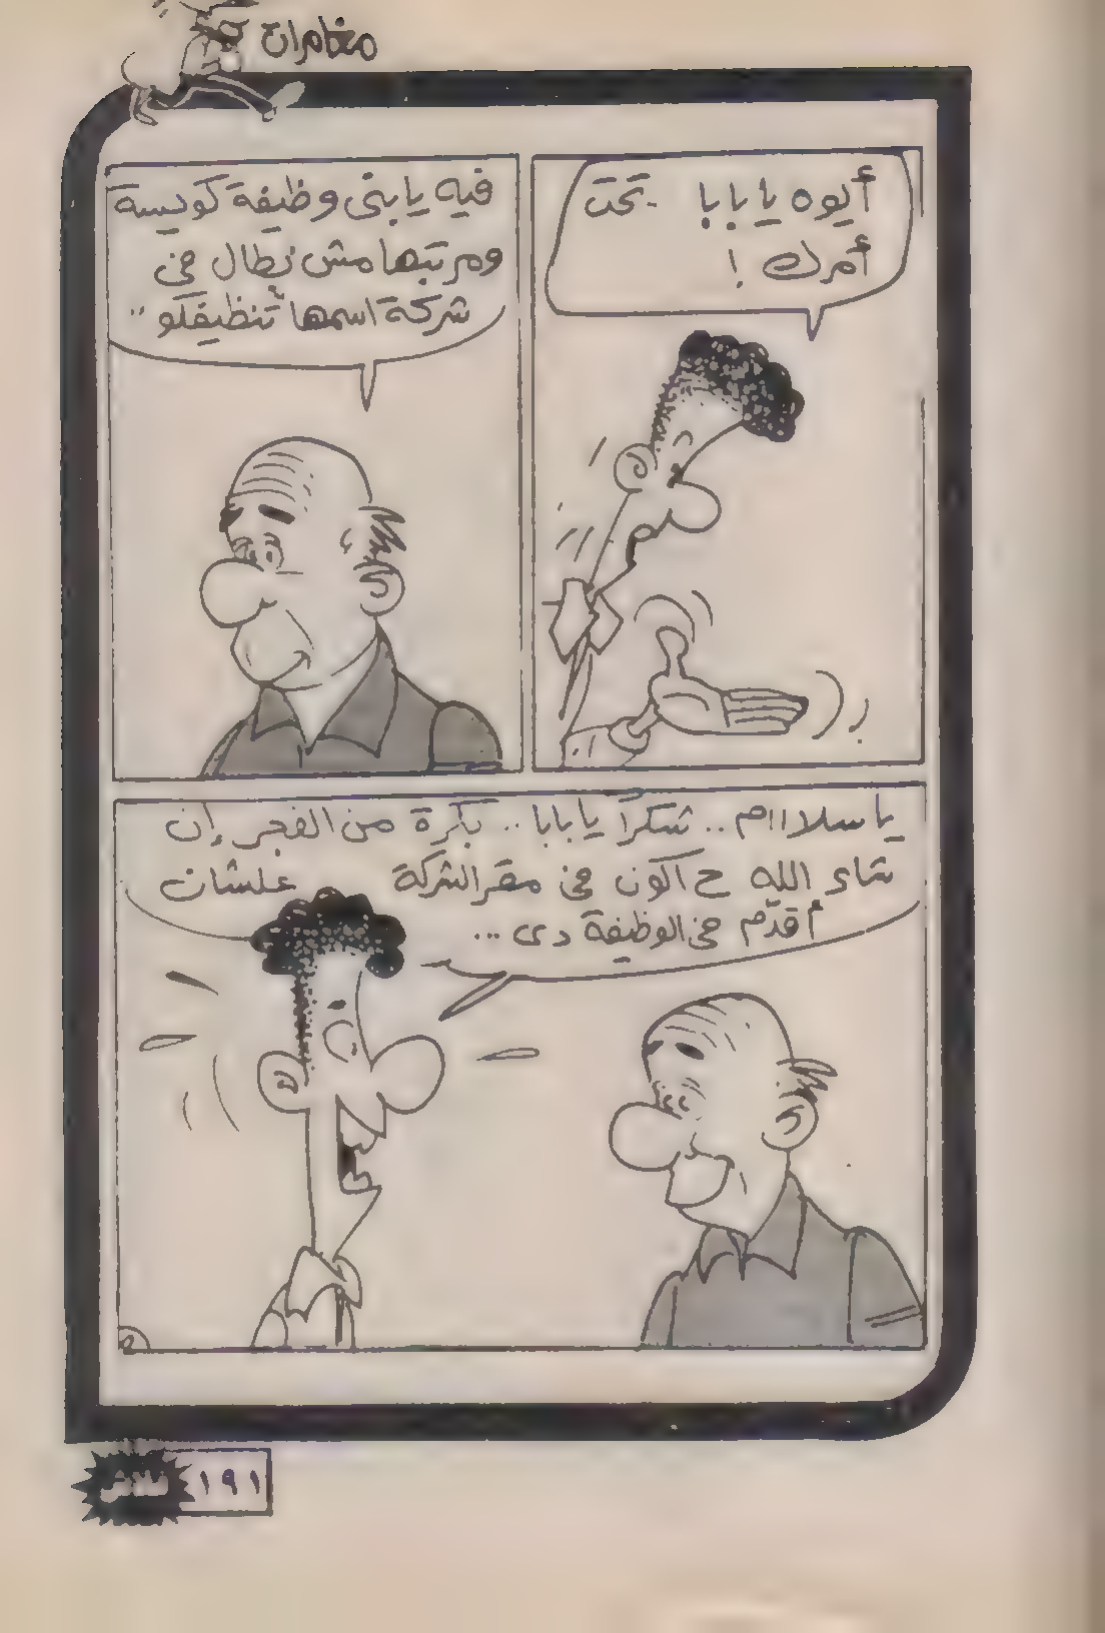 مغامرات
أيوه يا بابا .. تحت
أمرك !
فيه يا بنى وظيفة كويسة
ومرتبها مش بطال فى
شركة اسمها "تنظيفكو" ..
يا سلااام .. شكراً يا بابا .. بكرة من الفجر إن
شاء الله ح اكون فى مقر الشركة علشان
أقدّم فى الوظيفة دى ...
١٩١ فلاش